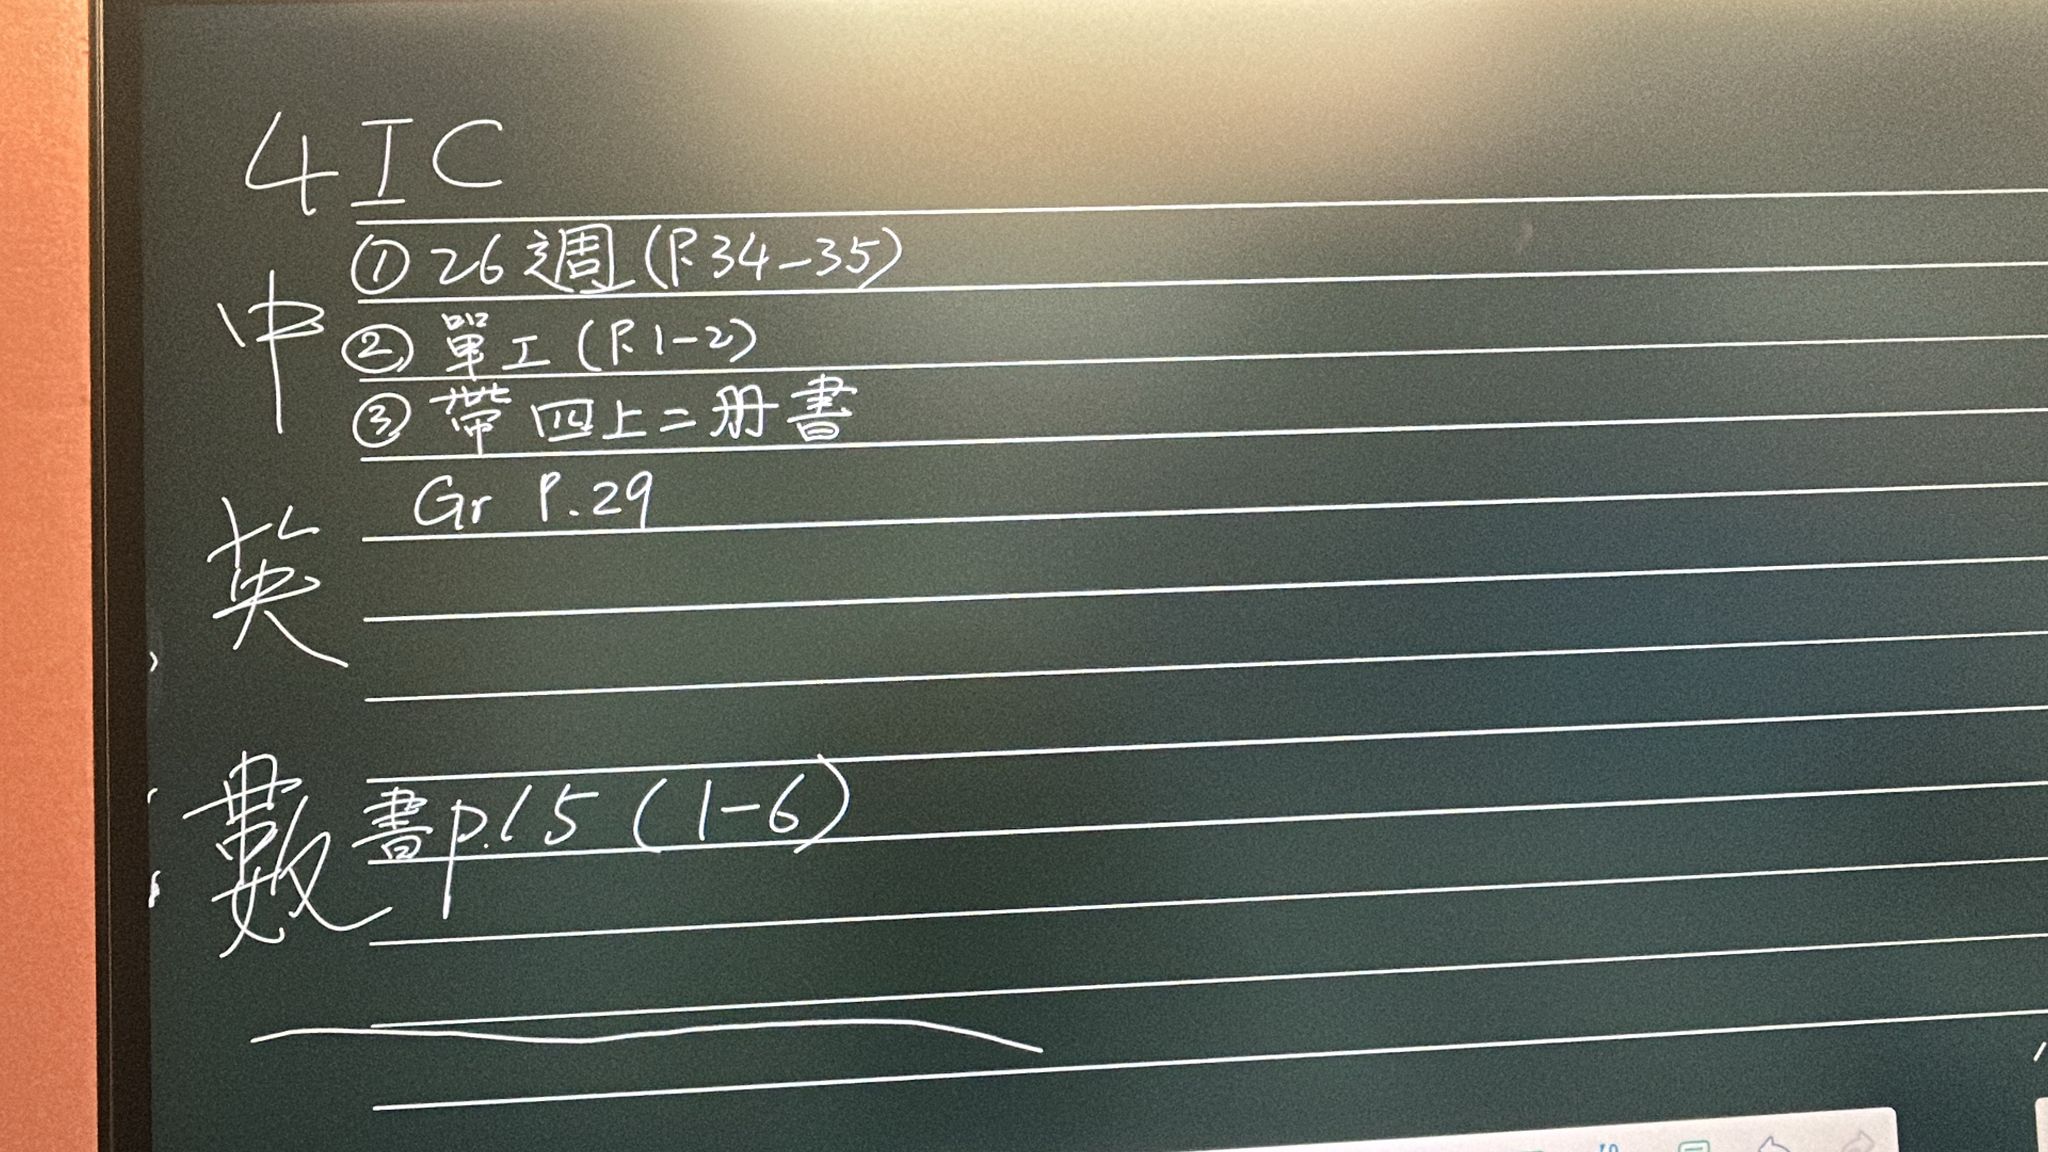 4IC
中
① 26週 (P.34-35)
② 單工 (P.1-2)
③ 帶四上二册書
英 Gr P.29
數 書p.15 (1-6)